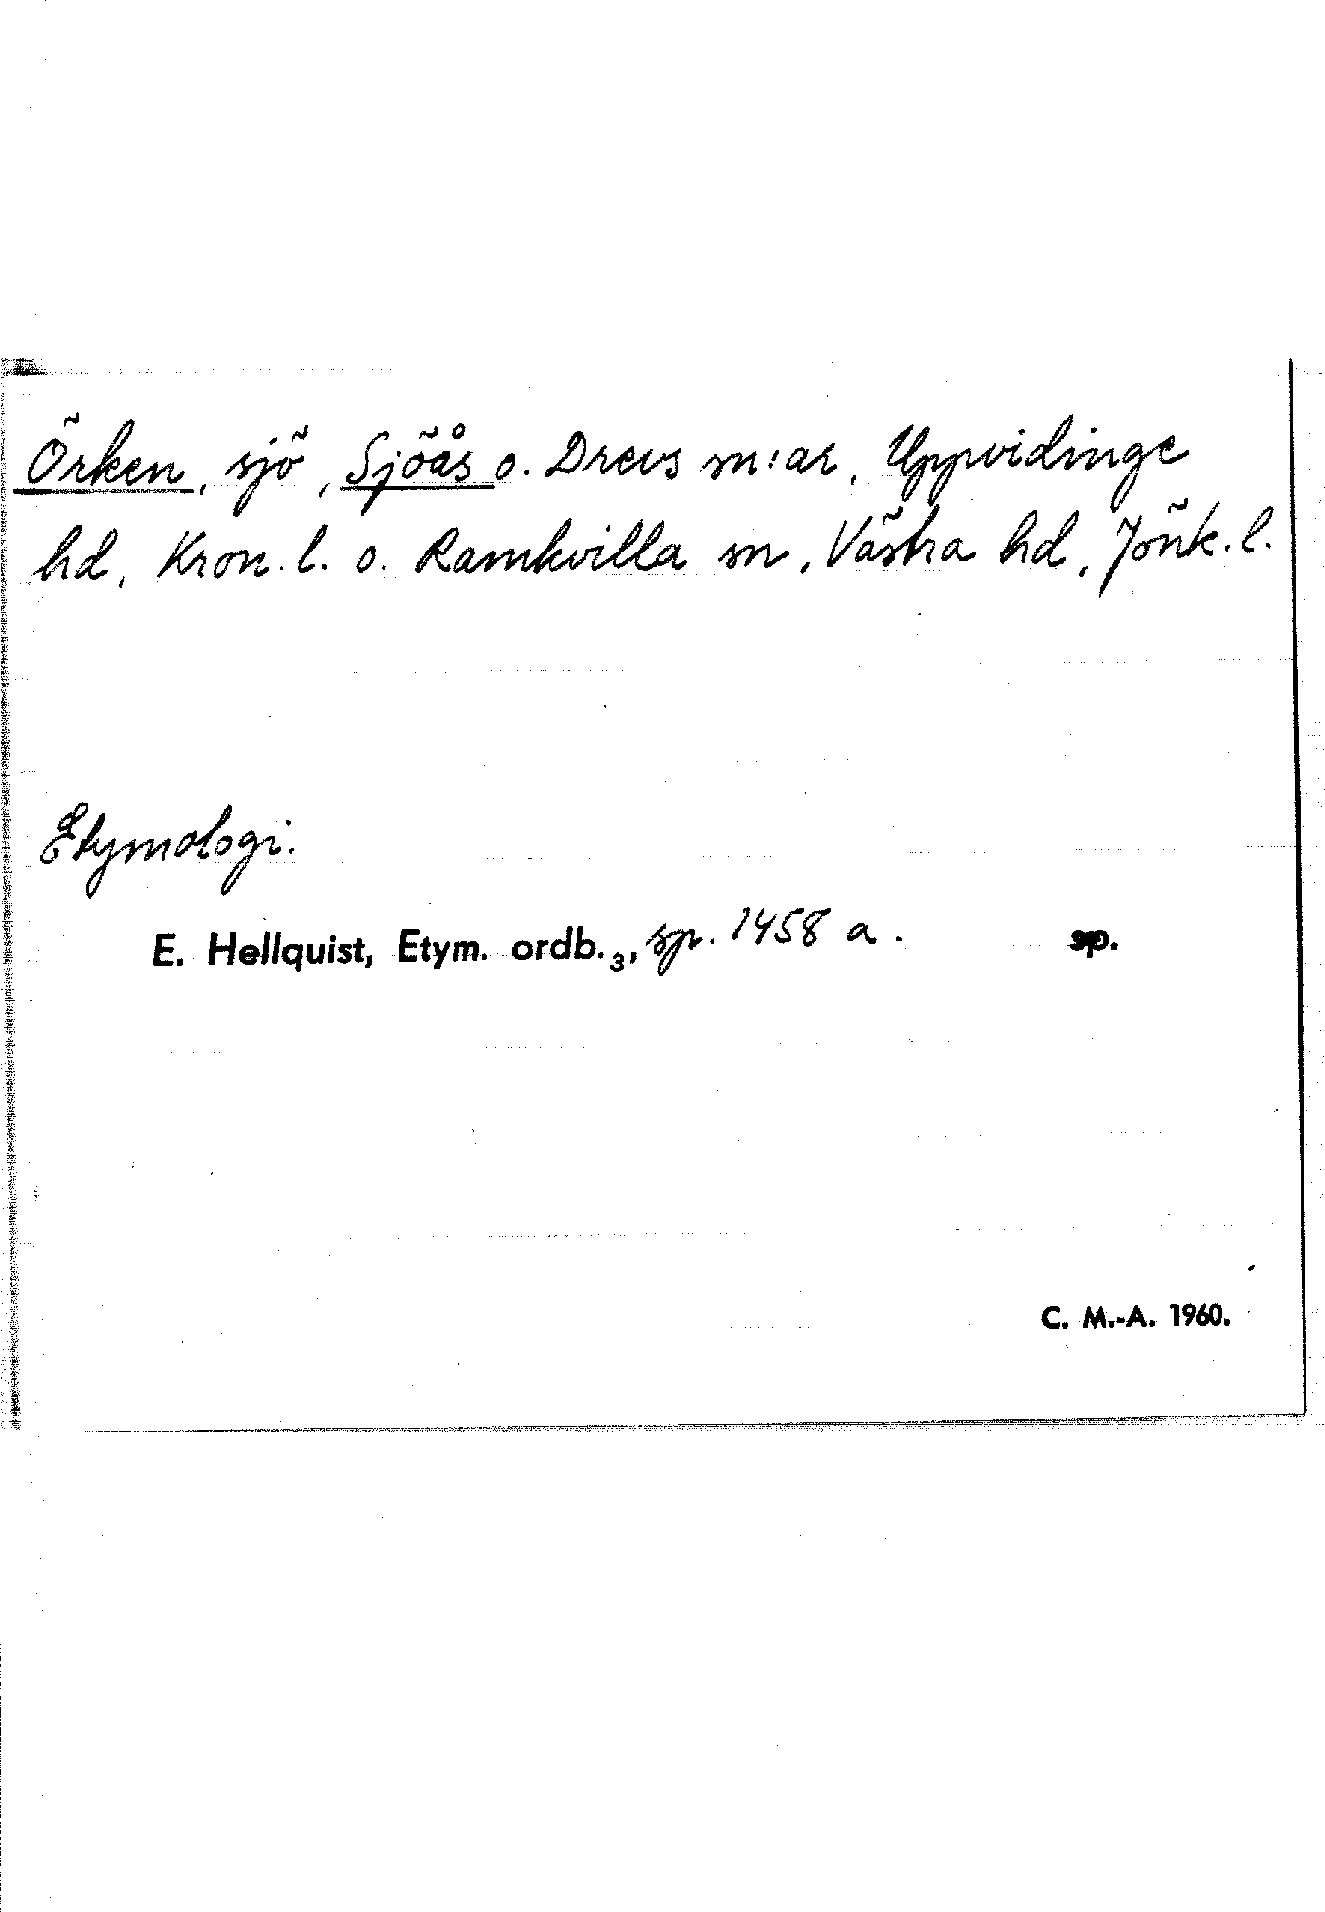 Örken, sjö, Sjöås o. Drevs sn:ar, Uppvidinge
hd, Kron. l. o. Ramkvilla sn, Västra hd, Jönk. l.
Etymologi.
E. Hellquist, Etym. ordb.₃, sp. 1458 a. sp.
C. M.-A. 1960.